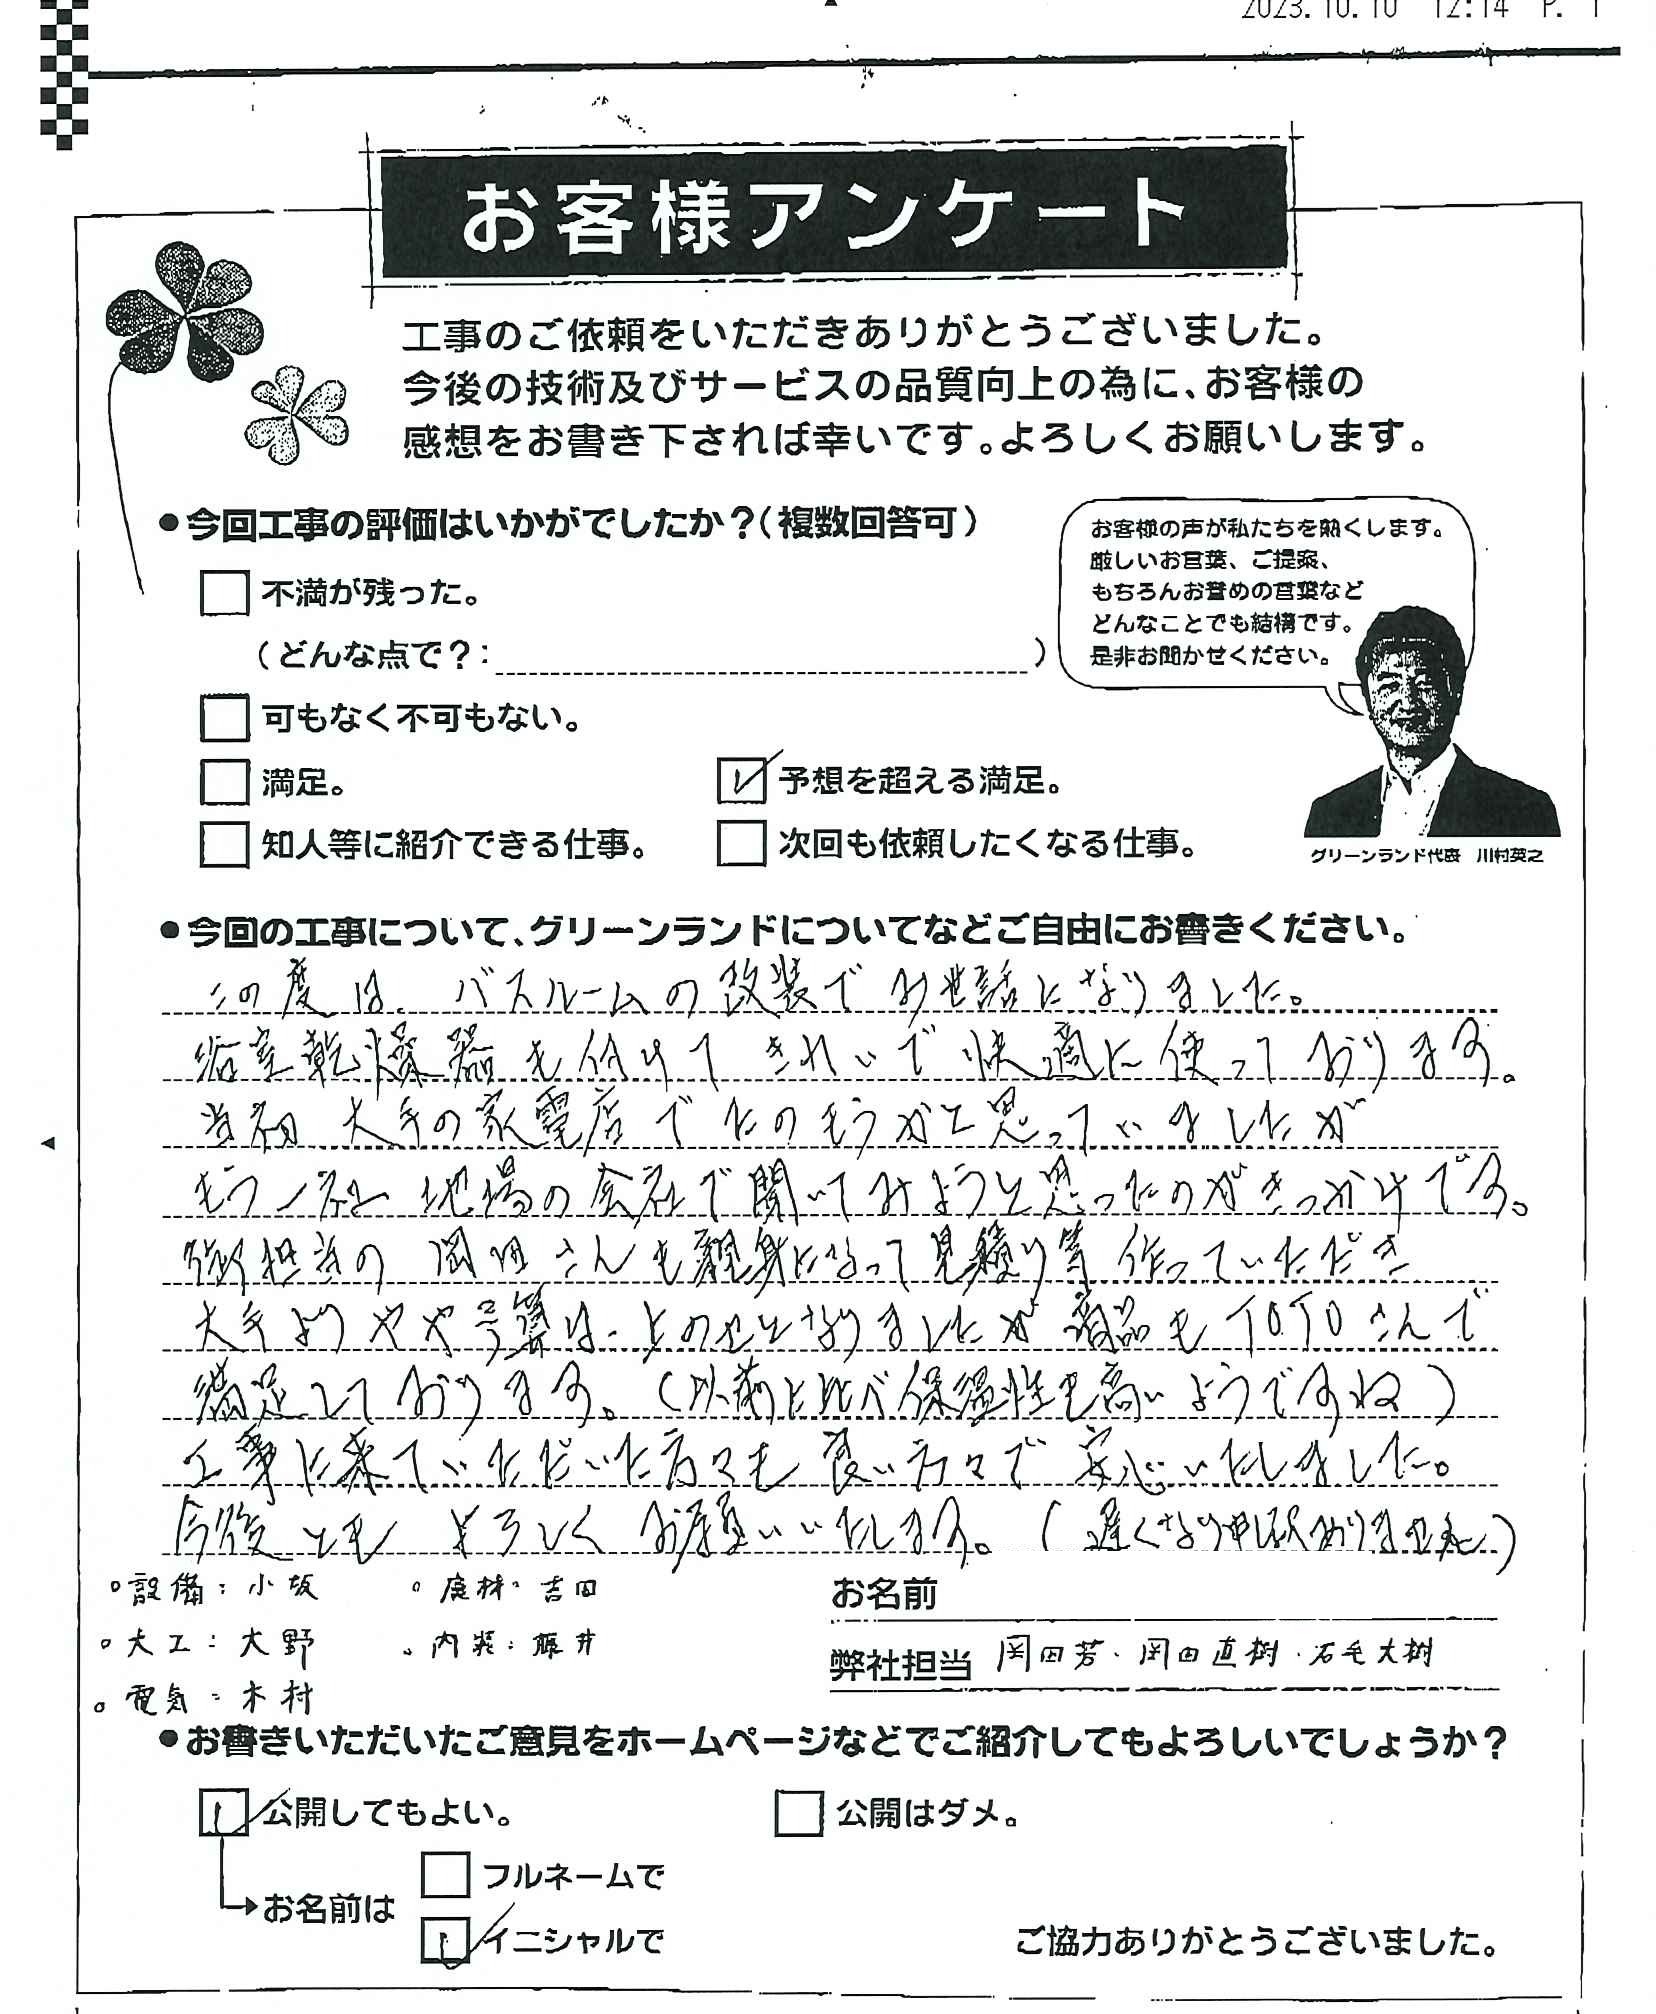 2023.10.10 12:14 P. 1
お客様アンケート
工事のご依頼をいただきありがとうございました。
今後の技術及びサービスの品質向上の為に、お客様の
感想をお書き下されば幸いです。よろしくお願いします。
●今回工事の評価はいかがでしたか？（複数回答可）
不満が残った。
（どんな点で？：　）
可もなく不可もない。
満足。
予想を超える満足。
知人等に紹介できる仕事。
次回も依頼したくなる仕事。
お客様の声が私たちを熱くします。
厳しいお言葉、ご提案、
もちろんお誉めの言葉など
どんなことでも結構です。
是非お聞かせください。
グリーンランド代表　川村英之
●今回の工事について、グリーンランドについてなどご自由にお書きください。
この度は、バスルームの改装でお世話になりました。
浴室乾燥器も付けてきれいで快適に使っております。
当初 大手の家電店でたのもうかと思っていましたが
もう一社 地場の会社で聞いてみようと思ったのがきっかけです。
御担当の 岡田さんも親身になって見積り等 作っていただき
大手よりやや予算は上のせとなりましたが 商品もTOTOさんで
満足しております。（以前に比べ保温性も高いようですね）
工事に来ていただいた方々も 良い方々で 安心いたしました。
今後とも よろしく お願いいたします。（遅くなり申し訳ありません）
○設備：小坂
○床材：吉田
○大工：大野
○内装：藤井
○電気：木村
お名前
弊社担当　岡田芳・岡田直樹・石毛大樹
●お書きいただいたご意見をホームページなどでご紹介してもよろしいでしょうか？
公開してもよい。
公開はダメ。
お名前は
フルネームで
イニシャルで
ご協力ありがとうございました。